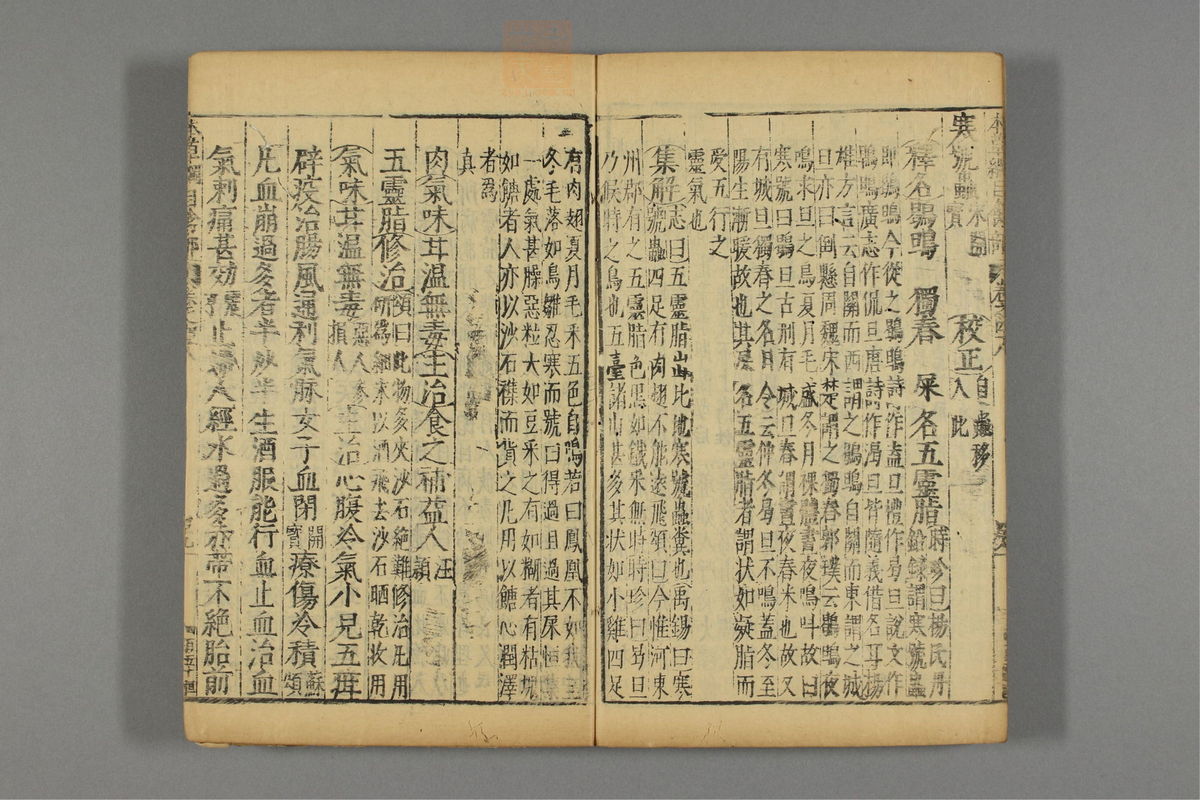 寒號蟲 宋開寶 校正 自蟲移入此
釋名 鶡鴠 獨春 屎名五靈脂 時珍曰楊氏丹鉛錄謂寒號蟲
即鶡鴠今從之鶡鴠詩作盍旦禮作曷旦說文作
鴠廣志作侃旦唐詩作渴旦皆隨義借名耳楊
雄方言云自關而西謂之鶡鴠自關而東謂之城
旦亦曰倒懸周魏宋楚謂之獨春郭璞云鶡鴠夜
鳴求旦之鳥夏月毛盛冬月裸體晝夜鳴叫故曰
寒號曰鶡旦古刑有城旦舂謂晝夜舂米也故又
有城旦獨舂之名月令云仲冬曷旦不鳴蓋冬至
陽生漸暖故也其屎名五靈脂者謂狀如凝脂而
受五行之
靈氣也
集解 志曰五靈脂出北地寒號蟲糞也禹錫曰寒
號蟲四足有肉翅不能遠飛頌曰今惟河東
州郡有之五靈脂色黑如鐵采無時時珍曰曷旦
乃候時之鳥也五臺諸山甚多其狀如小雞四足
有肉翅夏月毛采五色自鳴若曰鳳凰不如我至
冬毛落如鳥雛忍寒而號曰得過且過其屎恒集
一處氣甚臊惡粒大如豆采之有如糊者有粘塊
如餹者人亦以沙石襍而貨之凡用以餹心潤澤
者為
真
肉 氣味甘溫無毒 主治食之補益人 汪頴
五靈脂 修治 頌曰此物多夾沙石絕難修治凡用研為細末以酒飛去沙石晒乾收用
氣味甘溫無毒 惡人參損人 主治心腹冷氣小兒五疳
辟疫治腸風通利氣脉女子血閉 開寶 療傷冷積 蘇頌
凡血崩過多者半炒半生酒服能行血止血治血
氣刺痛甚効 震亨 止婦人經水過多赤帶不絕胎前